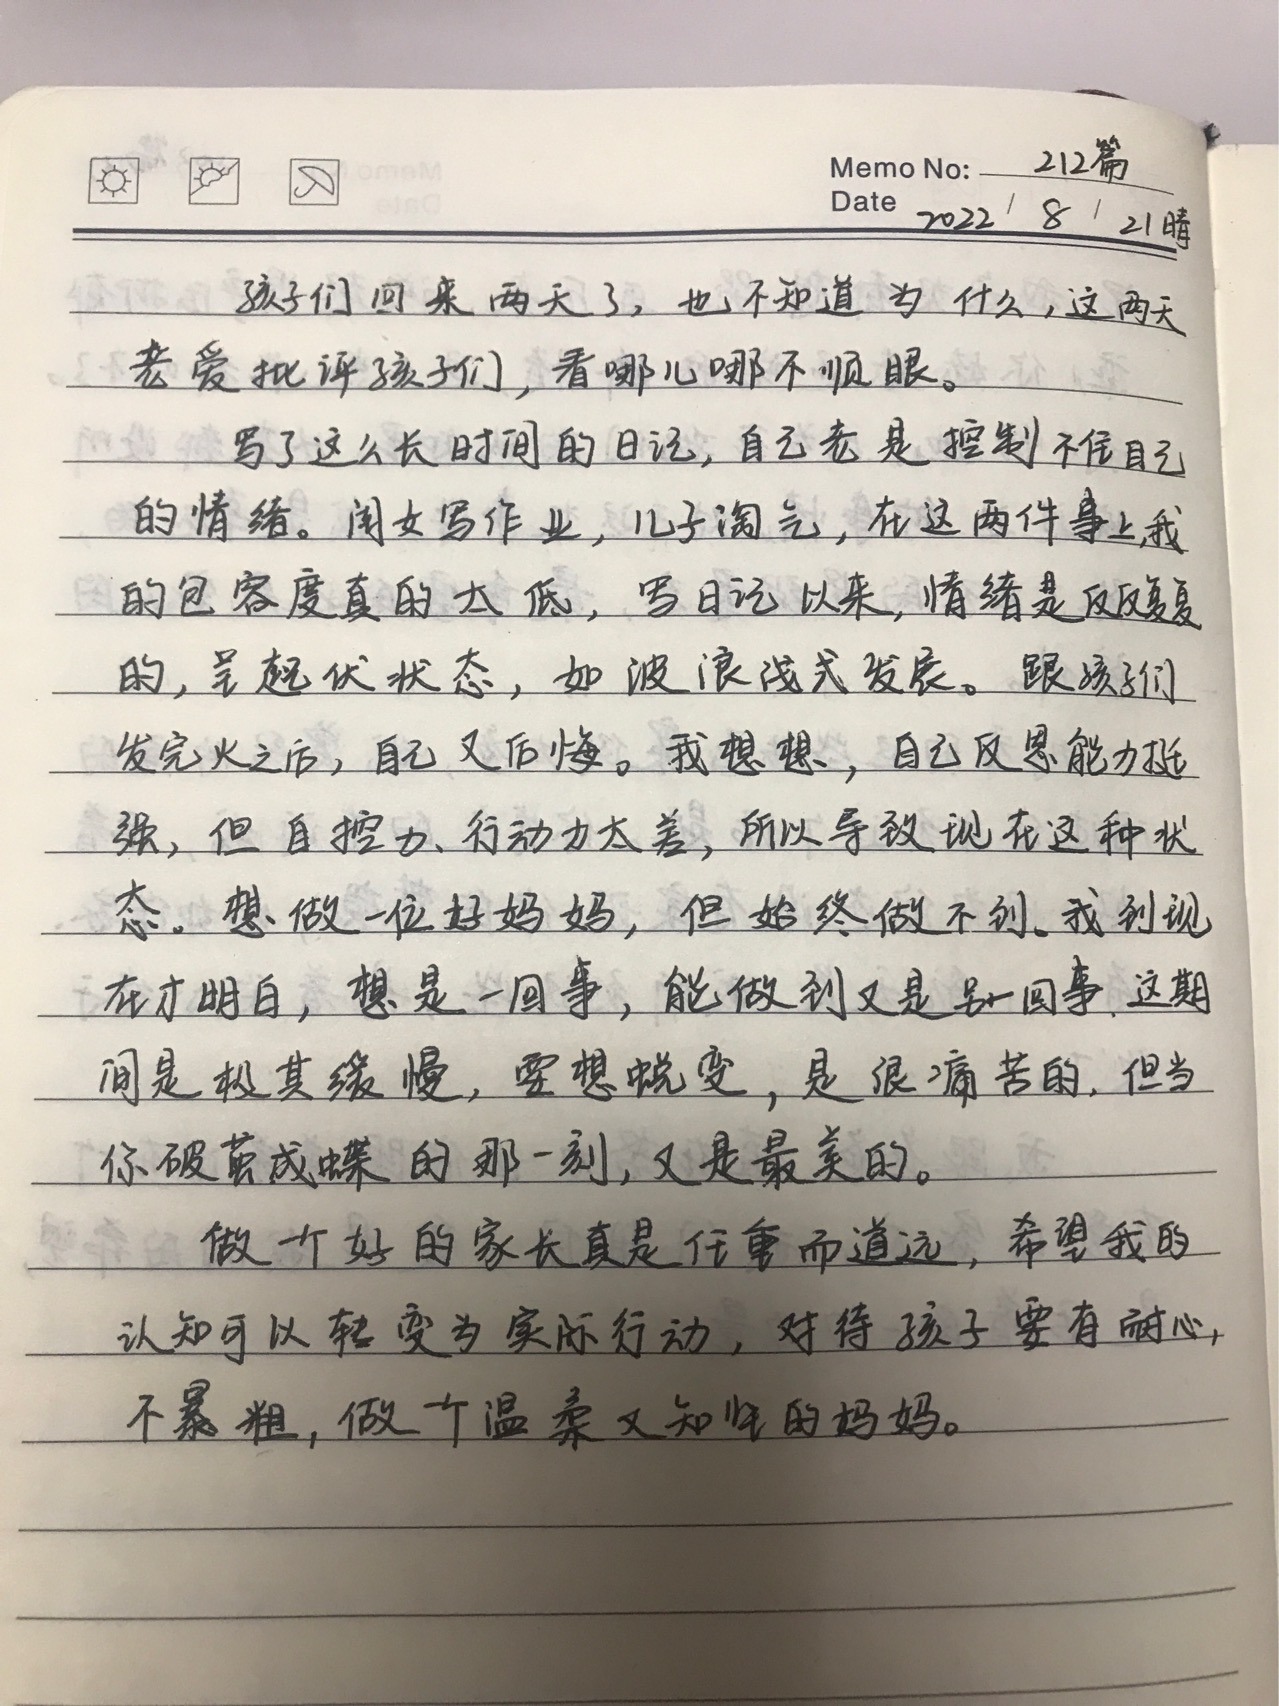 Memo No: 212篇
Date 2022 / 8 / 21晴
孩子们回来两天了，也不知道为什么，这两天
老爱批评孩子们，看哪儿哪不顺眼。
写了这么长时间的日记，自己老是控制不住自己
的情绪。闺女写作业，儿子淘气，在这两件事上，我
的包容度真的太低，写日记以来，情绪是反反复复
的，呈起伏状态，如波浪浅式发展。跟孩子们
发完火之后，自己又后悔。我想想，自己反思能力挺
强，但自控力、行动力太差，所以导致现在这种状
态。想做一位好妈妈，但始终做不到。我到现
在才明白，想是一回事，能做到又是另一回事.这期
间是极其缓慢，要想蜕变，是很痛苦的，但当
你破茧成蝶的那一刻，又是最美的。
做个好的家长真是任重而道远，希望我的
认知可以转变为实际行动，对待孩子要有耐心，
不暴粗，做个温柔又知性的妈妈。